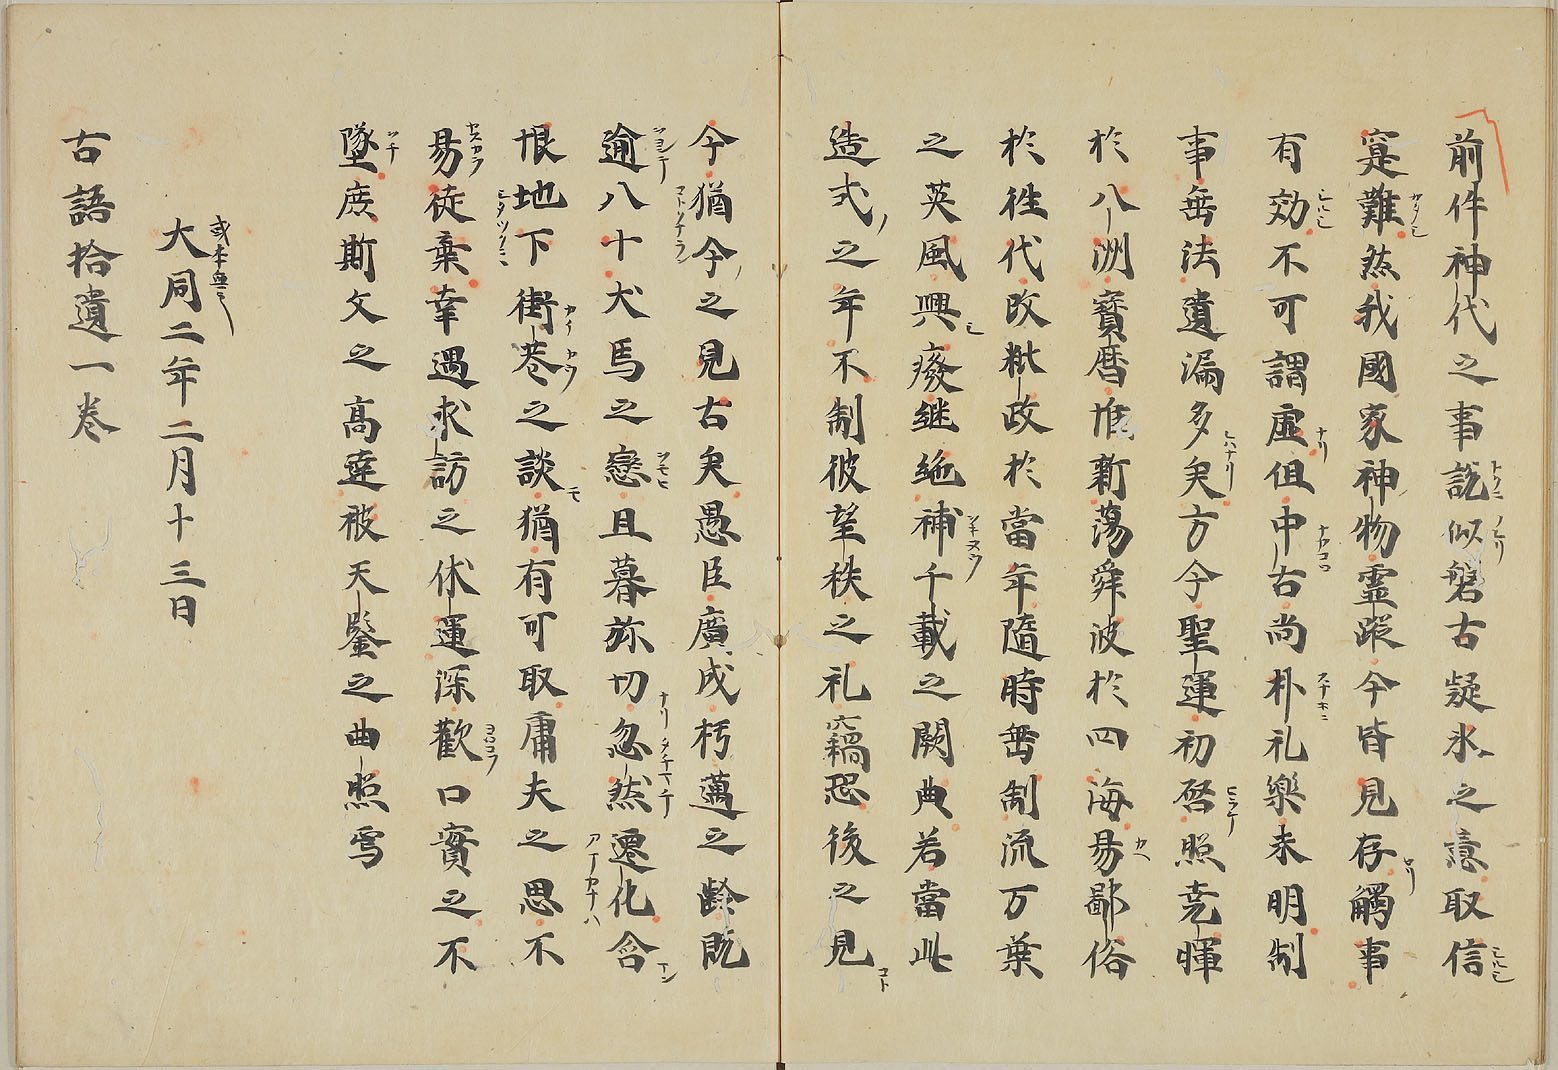 前件神代之事説似磐古疑氷之意取信
寔難然我國家神物霊蹤今皆見存觸事
有効不可謂虚但中古尚朴礼樂未明制
事無法遺漏多矣方今聖運初啓照尭暉
於八洲寶暦惟新蕩舜波於四海易鄙俗
於往代改粃政於當年隨時無制流万葉
之英風興癈継絶補千載之闕典若當此
造式之年不制彼望秩之礼竊恐後之見
今猶今之見古矣愚臣廣成朽邁之齢既
逾八十犬馬之戀旦暮弥切忽然遷化含
恨地下街巷之談猶有可取庸夫之思不
易徒棄幸遇求訪之休運深歡口實之不
墜庶斯文之高達被天鑒之曲照焉
或本無之
大同二年二月十三日
古語拾遺一巻